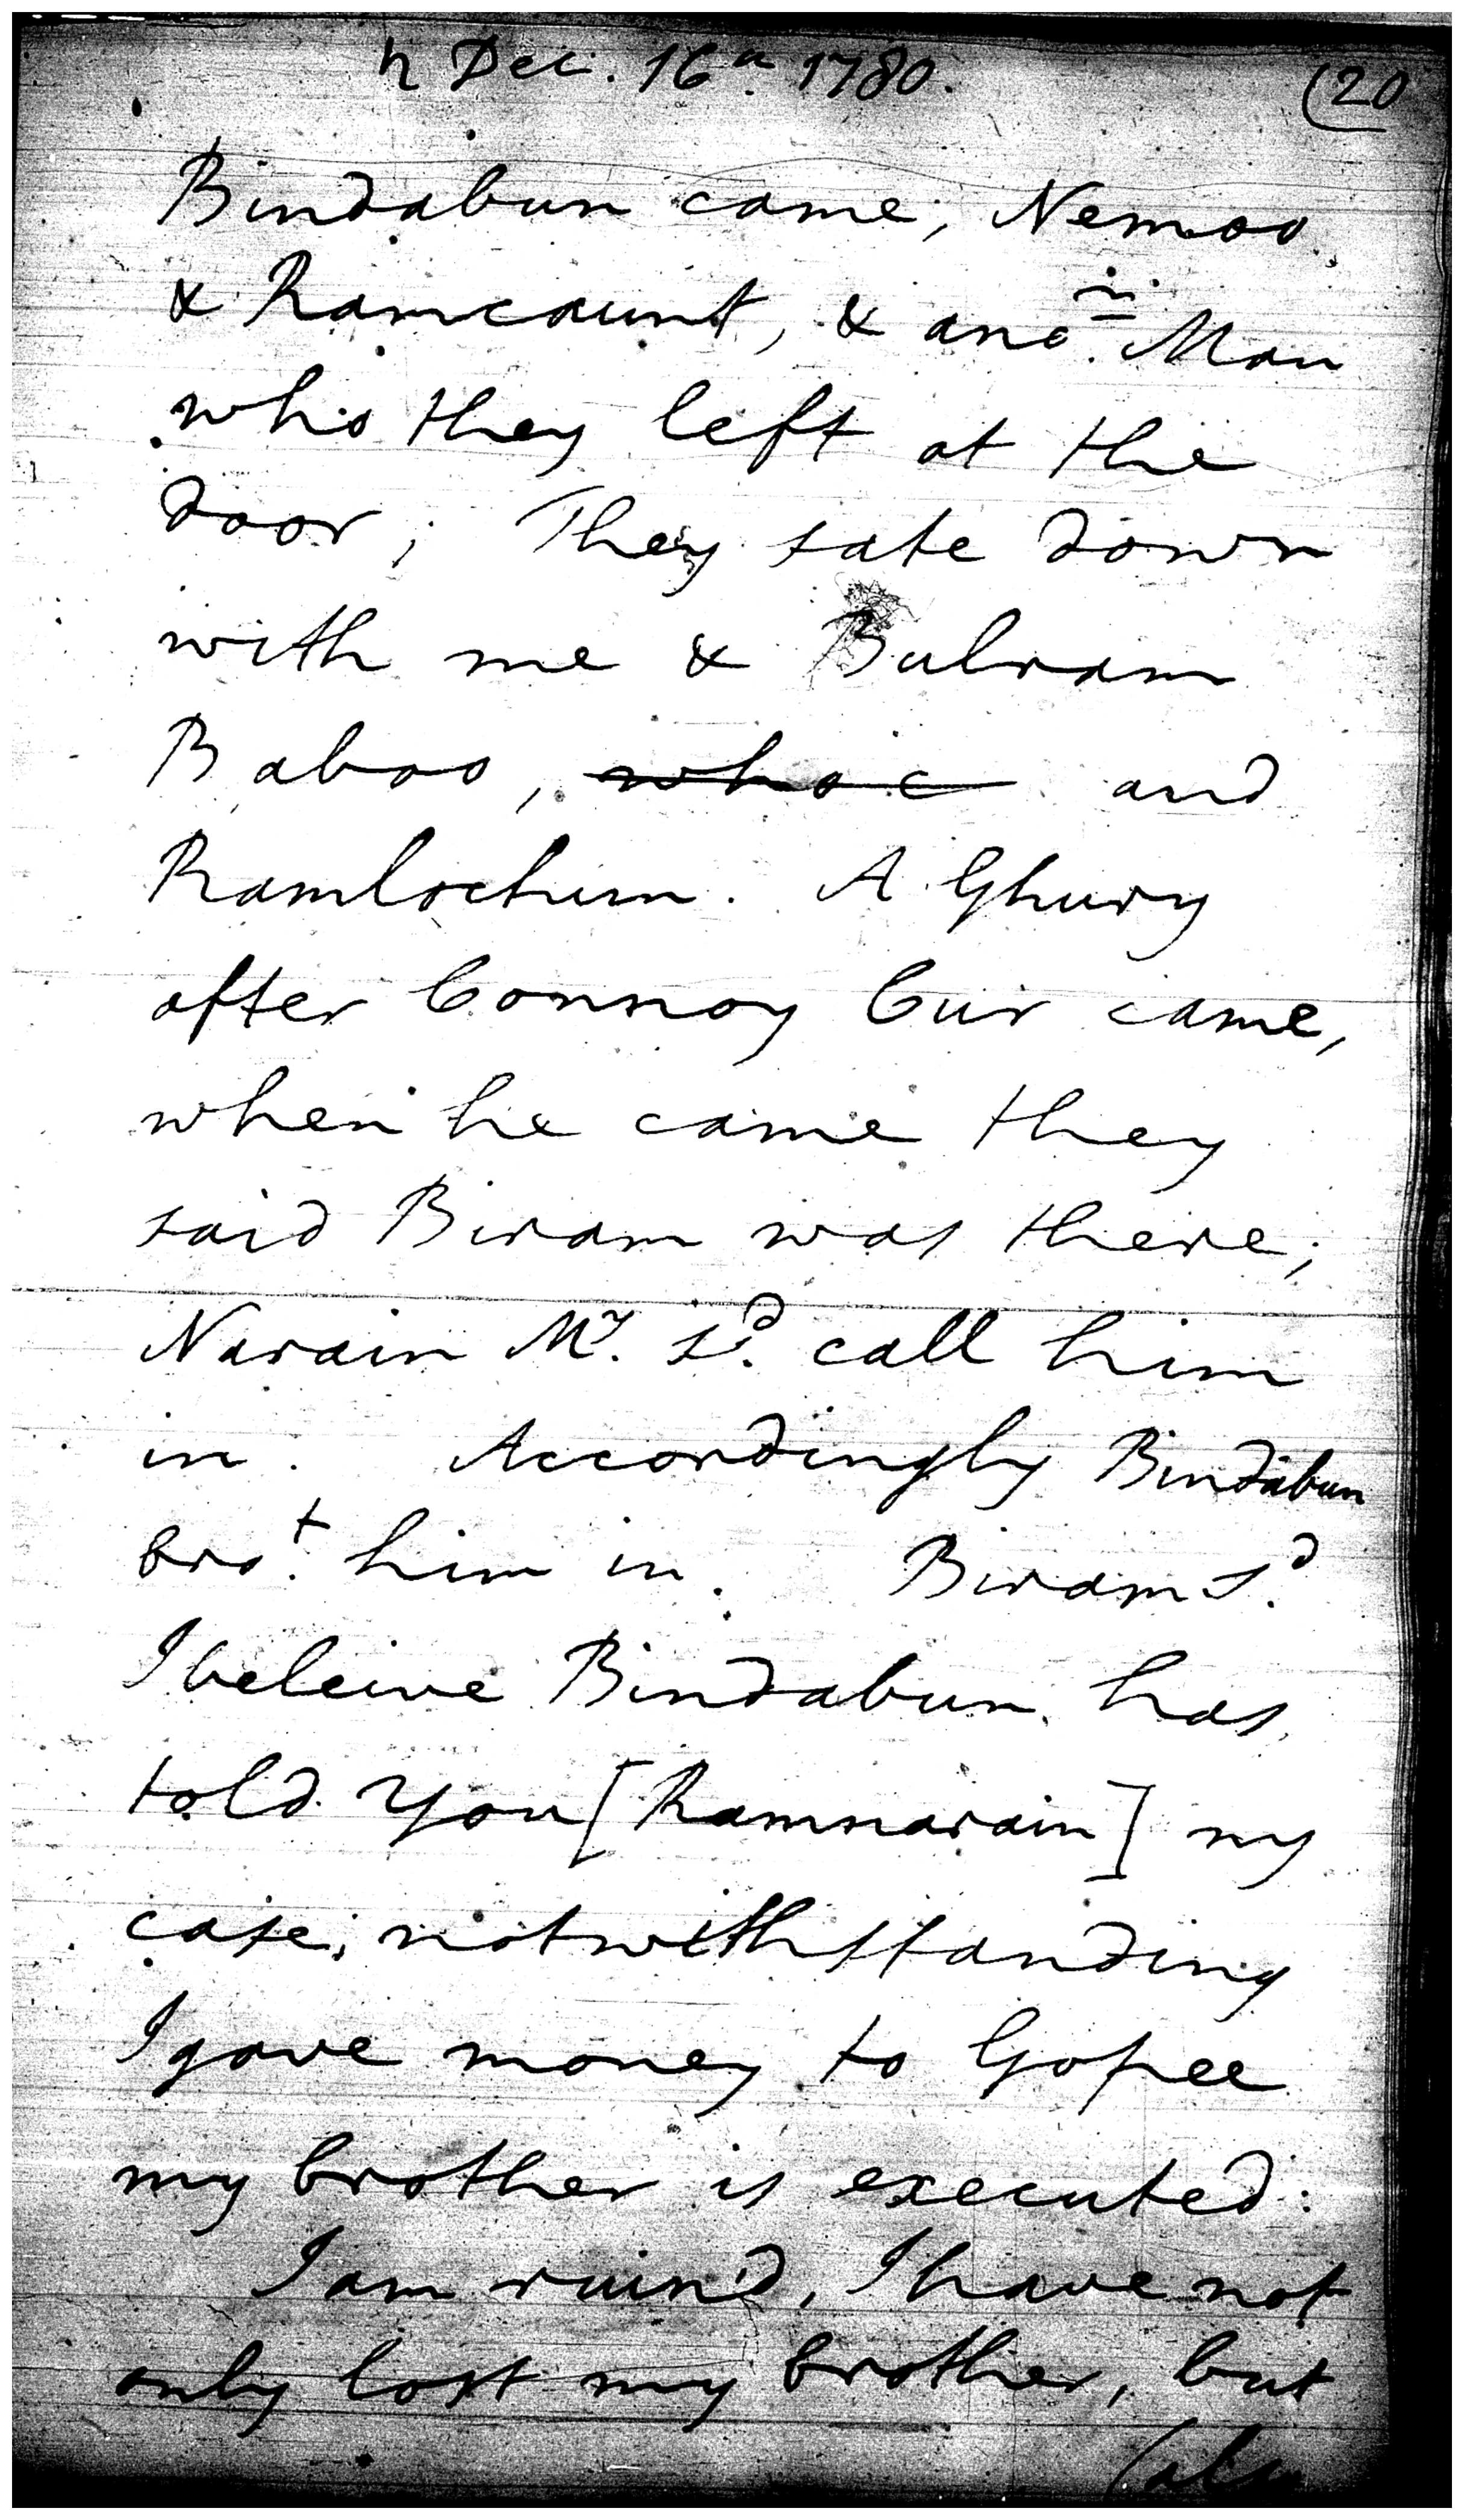 ♄ Dec. 16th 1780. (20
Bindabun came, Nemoo
& Ramcaunt, & ano.r Man
who they left at the
door; They sate down
with me & Bulram
Baboo, who c and
Ramlochun. A Ghury
after Connoy Cur came,
when he came they
said Biram was there;
Narain Mr. sd. call him
in. Accordingly Bindabun
brot. him in. Biram sd.
I beleive Bindabun has
told you [Ramnarain] my
case; notwithstanding
I gave money to Gopee
my brother is executed:
I am ruin'd, I have not
only lost my brother, but
(also